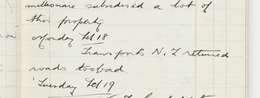 millionaire subsidised a lot of
this property
Monday Feb 18
Transports N. Z returned
roads too bad
Tuesday Feb 19